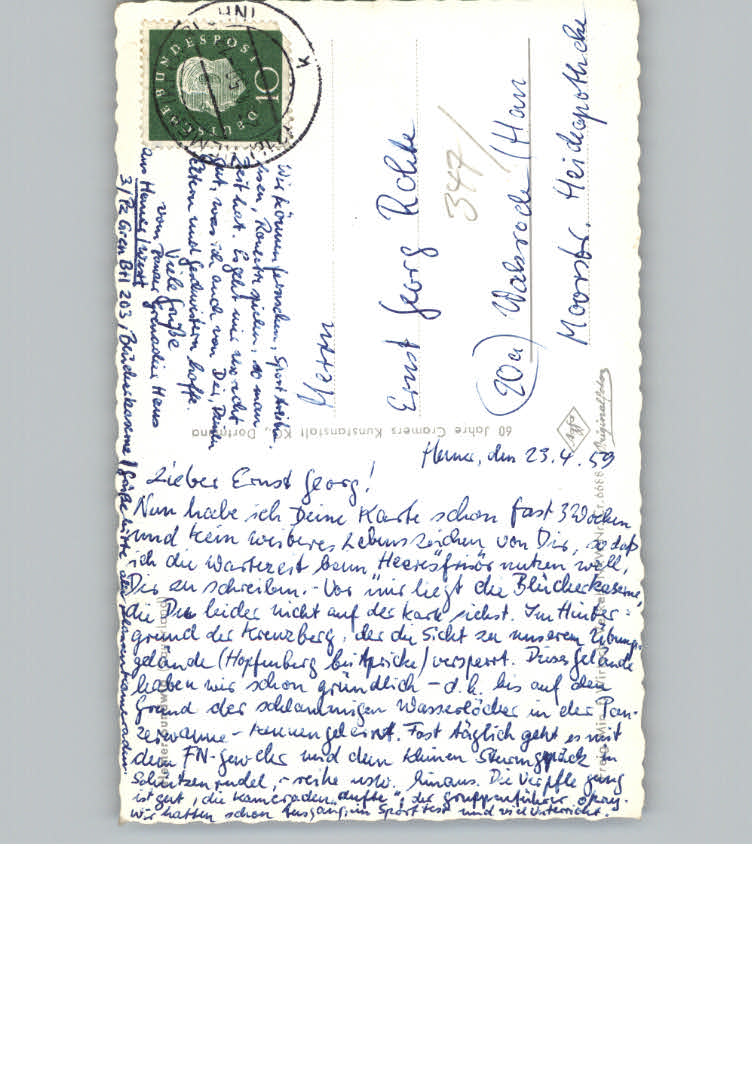 Hemer, den 23.4.59
Lieber Ernst Georg!
Nun habe ich Deine Karte schon fast 3 Wochen
und kein weiteres Lebenszeichen von Dir, so daß
ich die Wartezeit beim Heeresfrisör nutzen will,
Dir zu schreiben. - Vor mir liegt die Blücherkaserne,
die Du leider nicht auf der Karte siehst. Im Hinter-
grund der Kreuzberg, der die Sicht zu unserem Übungs-
gelände (Hopfenberg bei Apricke) versperrt. Dieses Gelände
haben wir schon gründlich - d.h. bis auf den
Grund der schlammigen Wasserlöcher in der Pan-
zerwanne - kennengelernt. Fast täglich geht es mit
dem FN-Gewehr und dem kleinen Sturmgepäck in
Schützenrudel, -reihe usw. hinaus. Die Verpflegung
ist gut, die Kameraden "dufte", der Gruppenführer okay.
Wir hatten schon Ausgang, im Sport Test und viel Unterricht.
Wir können fernsehen, Sport treiben,
lesen, spielen, so man
Zeit hat. Es geht mir
gut, was ich auch von Dir, Deinen
Eltern und Geschwistern hoffe.
Viele Grüße
vom Panzer Grenadier Hans
aus Hemer/Westf
3/Pz Gren Btl 203 / Blücherkaserne / Grüße bitte
Herrn
Ernst Georg Rohde
347/
(20a) Walsrode (Han
Moorstr. Heideapotheke
60 Jahre Cramers Kunstanstalt KG., Dortmund
Agfa
Originalfoto
DEUTSCHE BUNDESPOST
10